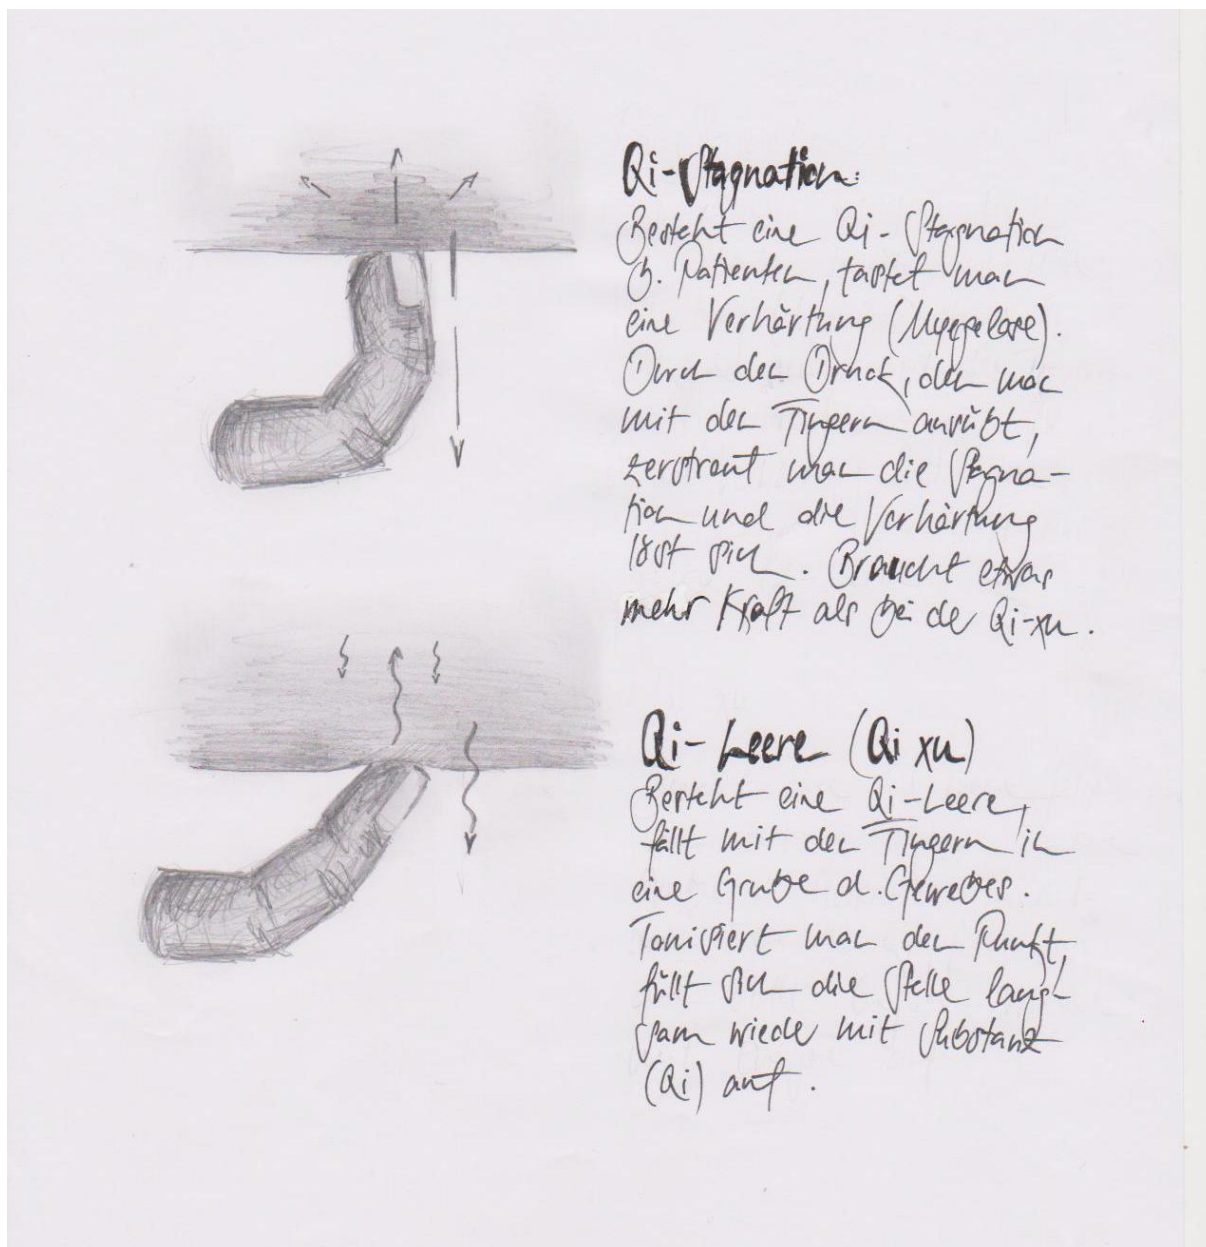 Qi-Stagnation:
Besteht eine Qi-Stagnation
b. Patienten, tastet man
eine Verhärtung (Myogelose).
Durch den Druck, den man
mit den Fingern ausübt,
zerstreut man die Stagna-
tion und die Verhärtung
löst sich. Braucht etwas
mehr Kraft als bei der Qi-xu.
Qi-Leere (Qi xu)
Besteht eine Qi-Leere,
fällt mit den Fingern in
eine Grube d. Gewebes.
Tonisiert man den Punkt,
füllt sich die Stelle lang-
sam wieder mit Substanz
(Qi) auf.